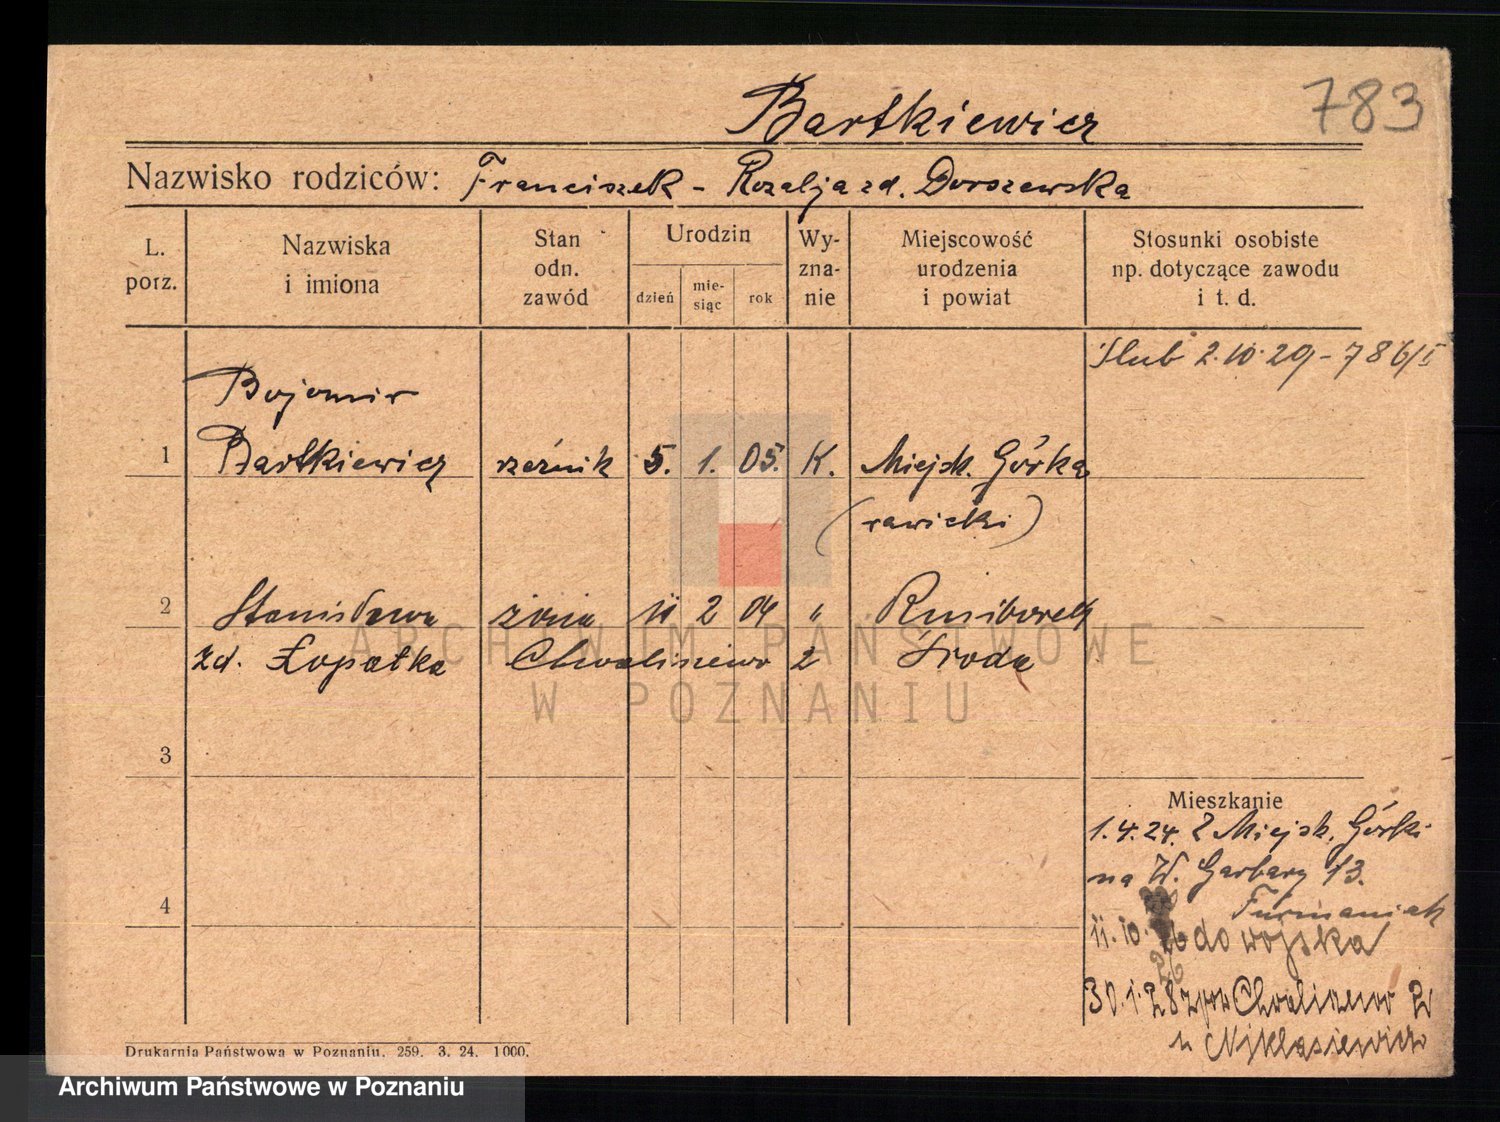 Bartkiewicz
783
Nazwisko rodziców: Franciszek - Rozalja zd. Dorszewska
L. porz.
Nazwiska i imiona
Stan odn. zawód
Urodzin
dzień
mie-siąc
rok
Wy-zna-nie
Miejscowość urodzenia i powiat
Stosunki osobiste np. dotyczące zawodu i t. d.
Ślub 2.10.29 - 786/I
Bojomir
1 Bartkiewicz rzeźnik 5. 1. 05. K. Miejsk. Górka
(rawicki)
2 Stanisława żona 11 2 04 "
zd. Łopatka Chwaliszewo 2 Środa
3
4
Mieszkanie
1.4.24. Z Miejsk. Górki
na W. Garbary 13.
Furmaniak
11.10. 26 do wojska
26
30.1.28 Chwaliszewo 2
u
Drukarnia Państwowa w Poznaniu. 259. 3. 24. 1000.
ARCHIWUM PAŃSTWOWE
W POZNANIU
Archiwum Państwowe w Poznaniu